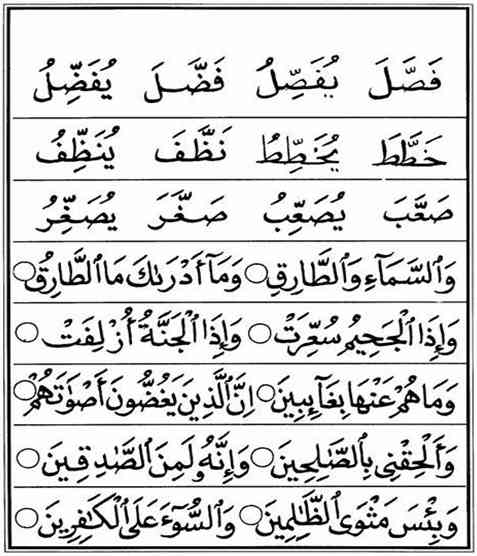 فَصَّلَ يُفَصِّلُ فَضَّلَ يُفَضِّلُ
خَطَّطَ يُخَطِّطُ نَظَّفَ يُنَظِّفُ
صَعَّبَ يُصَعِّبُ صَغَّرَ يُصَغِّرُ
وَٱلسَّمَآءِ وَٱلطَّارِقِ ○ وَمَآ أَدْرَىٰكَ مَا ٱلطَّارِقُ ○
وَإِذَا ٱلْجَحِيمُ سُعِّرَتْ ○ وَإِذَا ٱلْجَنَّةُ أُزْلِفَتْ ○
وَمَا هُمْ عَنْهَا بِغَآئِبِينَ ○ إِنَّ ٱلَّذِينَ يَغُضُّونَ أَصْوَٰتَهُمْ ○
وَأَلْحِقْنِى بِٱلصَّٰلِحِينَ ○ وَإِنَّهُۥ لَمِنَ ٱلصَّٰدِقِينَ ○
وَبِئْسَ مَثْوَى ٱلظَّٰلِمِينَ ○ وَٱلسُّوٓءَ عَلَى ٱلْكَٰفِرِينَ ○